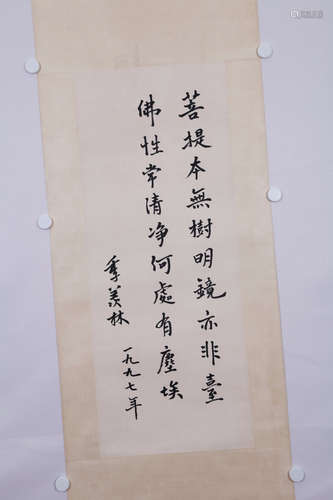 菩提本無樹明鏡亦非臺
佛性常清净何處有塵埃
季羨林
一九九七年